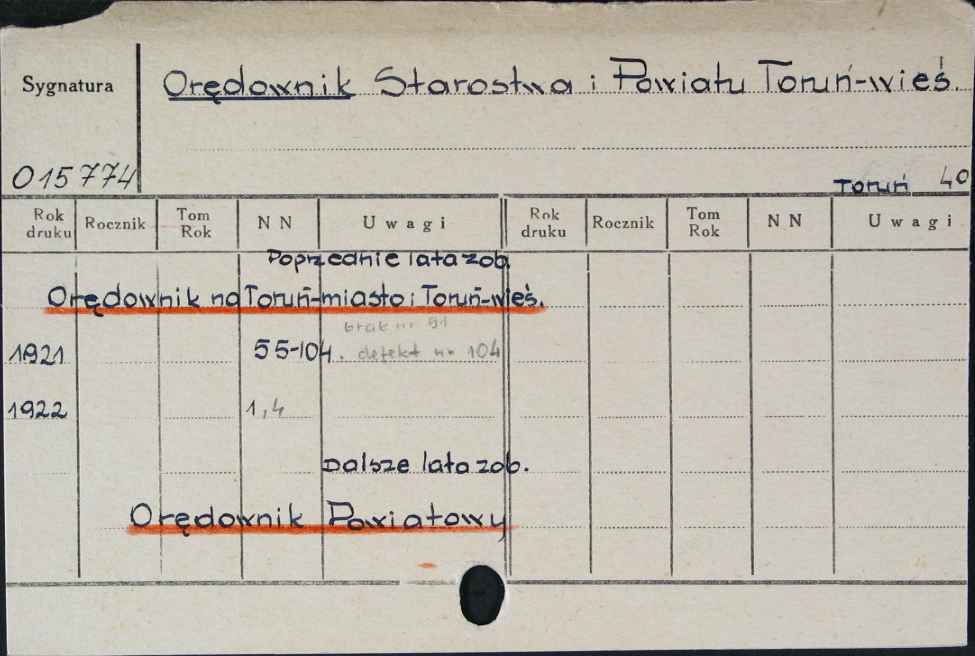 Sygnatura
Orędownik Starostwa i Powiatu Toruń-wieś.
015774
Toruń 40
Rok druku Rocznik Tom Rok N N Uwagi Rok druku Rocznik Tom Rok N N Uwagi
Poprzednie lata zob.
Orędownik na Toruń-miasto i Toruń-wieś.
brak nr 91
1921 55-104. defekt nr 104
1922 1,4
Dalsze lata zob.
Orędownik Powiatowy